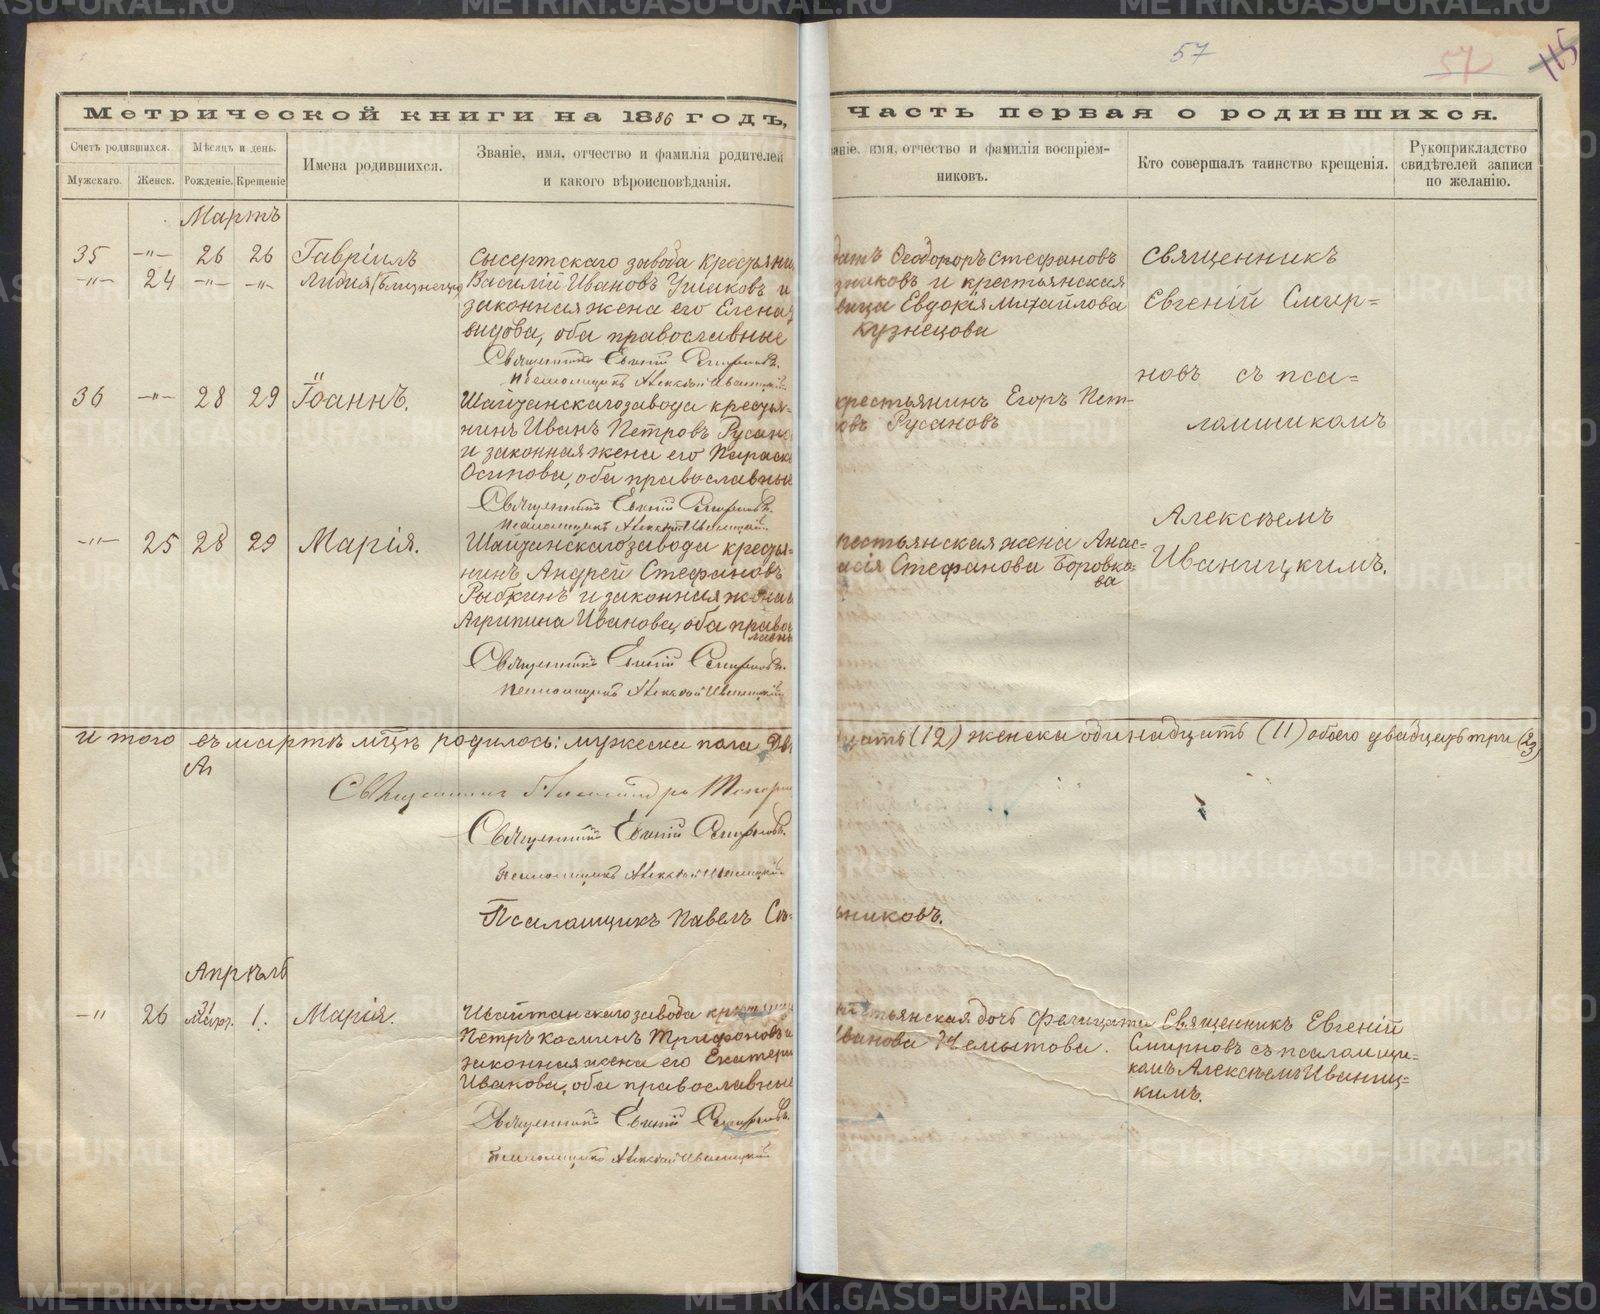 57
57
115
Метрической книги на 1886 годъ,
Часть первая о родившихся.
Счетъ родившихся.
Мѣсяцъ и день.
Имена родившихся.
Званіе, имя, отчество и фамилія родителей
и какого вѣроисповѣданія.
Мужскаго.
Женск.
Рожденіе.
Крещеніе
аніе, имя, отчество и фамилія воспріем-
никовъ.
Кто совершалъ таинство крещенія.
Рукоприкладство
свидѣтелей записи
по желанію.
Мартъ
35 -"- 26 26 Гавріилъ
-"- 24 -"- -"- Лидия (близнецы)
Сысертскаго завода крестьяни
Василій Ивановъ Ушаковъ и
законная жена его Елена
видова, оба православные
Священникъ Евгеній Смирновъ.
Псаломщикъ Алексѣй Иваницкій.
датъ Ѳеодоръ Стефановъ
зниковъ и крестьянская
вица Евдокія Михайлова
Кузнецова
Священникъ
Евгеній Смир=
новъ съ пса=
ломщикомъ
Алексѣемъ
Иваницкимъ.
36 -"- 28 29 Іоаннъ.
Шайтанскаго завода крестья-
нинъ Иванъ Петровъ Русано
и законная жена его Параске
Осипова, оба православные
Священникъ Евгеній Смирновъ.
Псаломщикъ Алексѣй Иваницкій.
крестьянинъ Егоръ Пет-
ровъ Русановъ
-"- 25 28 29 Марія.
Шайтанскаго завода кресты-
нинъ Андрей Стефановъ
Рыбкинъ и законная жена
Агрипина Иванова, оба право
славн
Священникъ Евгеній Смирновъ.
Псаломщикъ Алексѣй Иваницкій
рестьянская жена Анас=
асія Стефанова Боровко-
ва
и того въ мартѣ мцѣ родилось: мужеска пола Дв
ѣнадцать (12) женска одинадцать (11) обоего двадцать три (23)
Ап
Священникъ
Священникъ Евгеній Смирновъ.
Псаломщикъ Алексѣй Иваницкій
Псаломщикъ Павелъ Со-
ьниковъ.
Апрѣль
-" 26 31 Март. 1. Марія.
Шайтанскаго завода крестьяни
Петръ Косминъ Трифоновъ и
законная жена его Екатери
Иванова, оба православные
Священникъ Евгеній Смирновъ.
Псаломщикъ Алексѣй Иваницкій
крестьянская дочь Фелицата
Иванова Чемытова.
Священникъ Евгеній
Смирновъ съ псаломщи-
комъ Алексѣемъ Иваниц=
кимъ.
METRIKI.GASO-URAL.RU